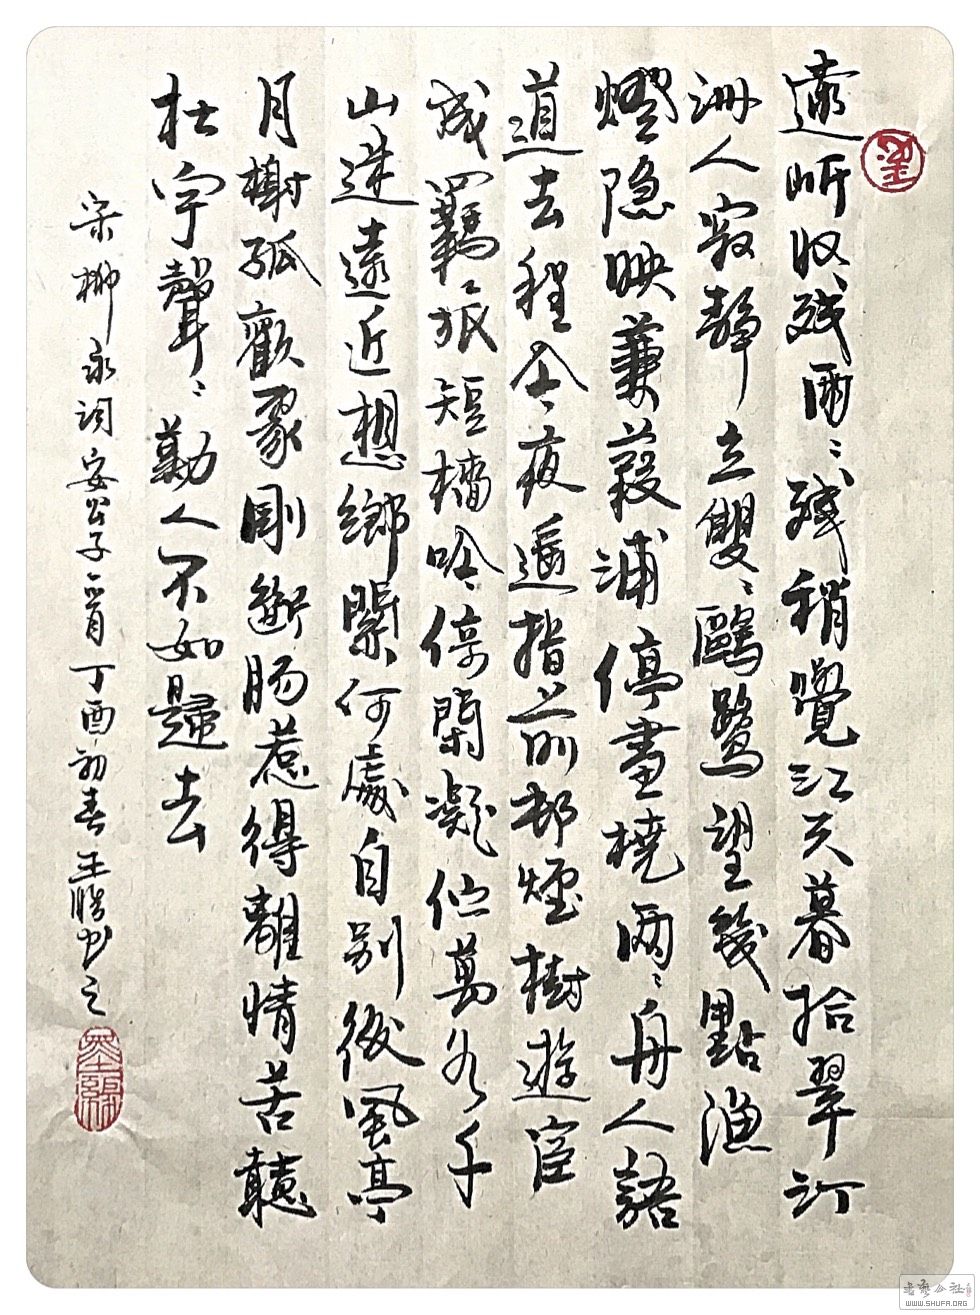 遠岸收残雨〻残稍覺江天暮拾翠汀
洲人寂靜立雙〻鷗鷺望幾點漁
燈隐映蒹葭浦停畫橈兩〻舟人語
道去程今夜遥指前邨煙樹遊宦
成羈旅短檣吟倚閑凝佇萬水千
山迷遠近想鄉關何處自别後風亭
月榭孤歡聚剛斷腸惹得離情苦聽
杜宇聲〻勸人不如歸去
宋柳永詞安公子一首丁酉初春王書之
WWW.SHUFA.ORG